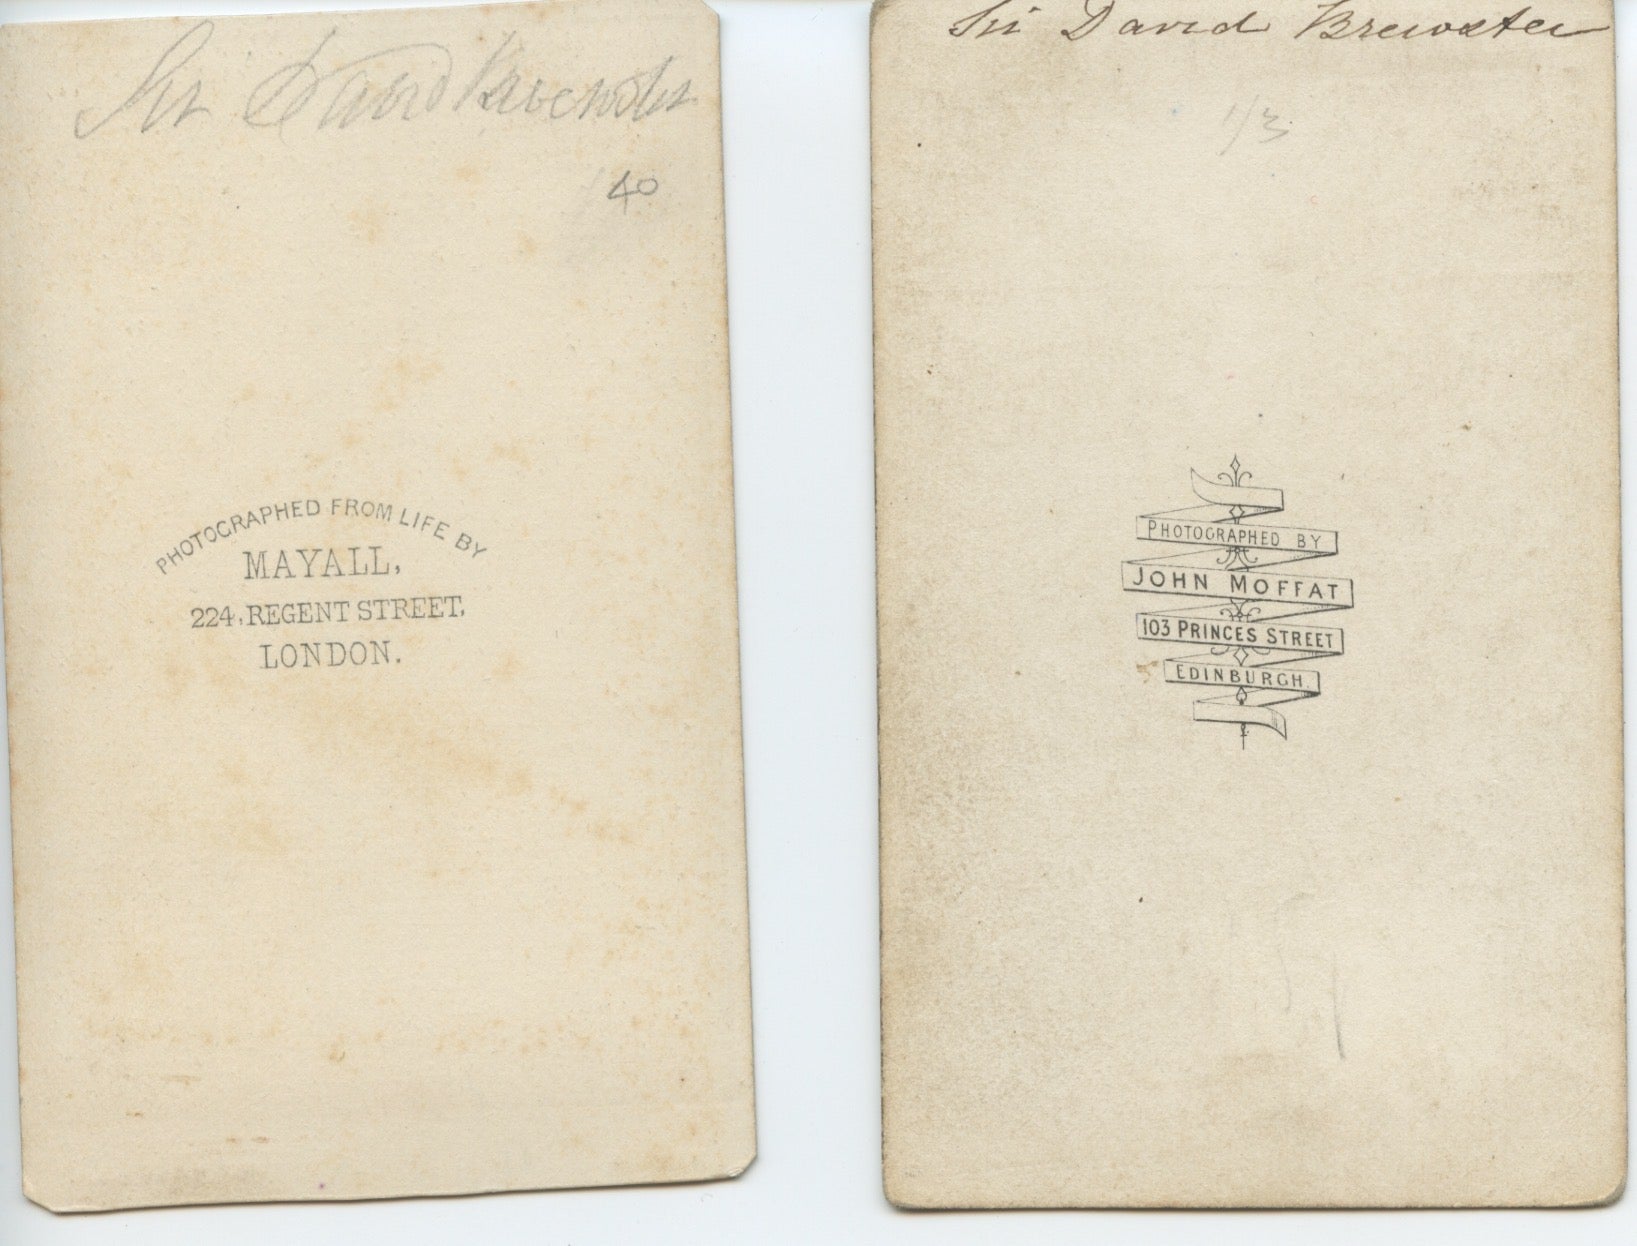 Sir David Brewster
40
PHOTOGRAPHED FROM LIFE BY
MAYALL,
224, REGENT STREET,
LONDON.
Sir David Brewster
1/3
PHOTOGRAPHED BY
JOHN MOFFAT
103 PRINCES STREET
EDINBURGH.